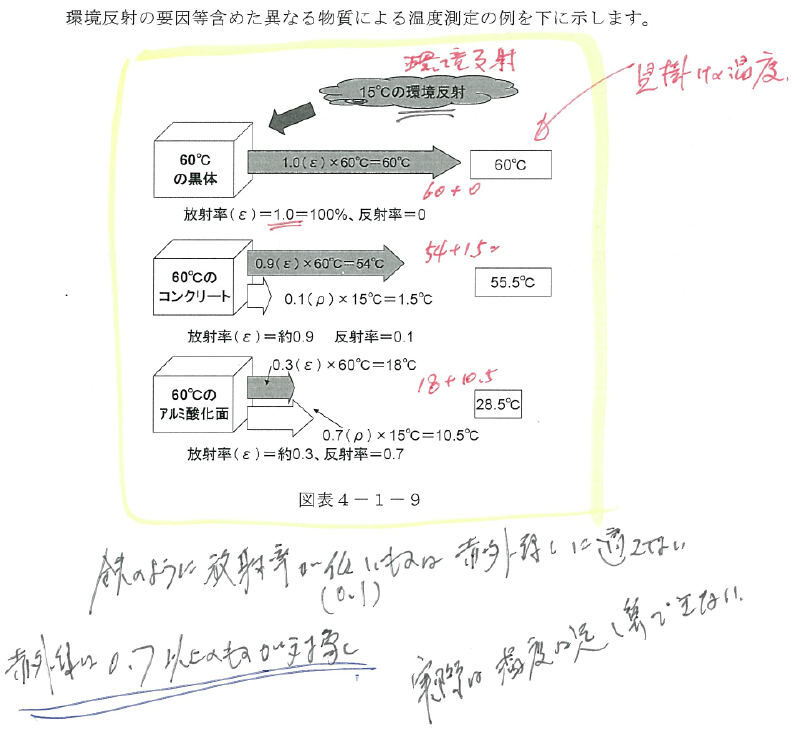 環境反射の要因等含めた異なる物質による温度測定の例を下に示します。
環境反射
見掛けの温度
15℃の環境反射
60℃
の黒体
1.0(ε)×60℃=60℃
60℃
60+0
放射率(ε)=1.0=100%、反射率=0
54+1.5=
60℃の
コンクリート
0.9(ε)×60℃=54℃
0.1(ρ)×15℃=1.5℃
55.5℃
放射率(ε)=約0.9 反射率=0.1
0.3(ε)×60℃=18℃
60℃の
アルミ酸化面
18+10.5
28.5℃
0.7(ρ)×15℃=10.5℃
放射率(ε)=約0.3、反射率=0.7
図表4-1-9
のように放射率が低いものは赤外線に適さない
(0.1)
赤外線は0.7以上のものが対象
実際は温度は足し算できない